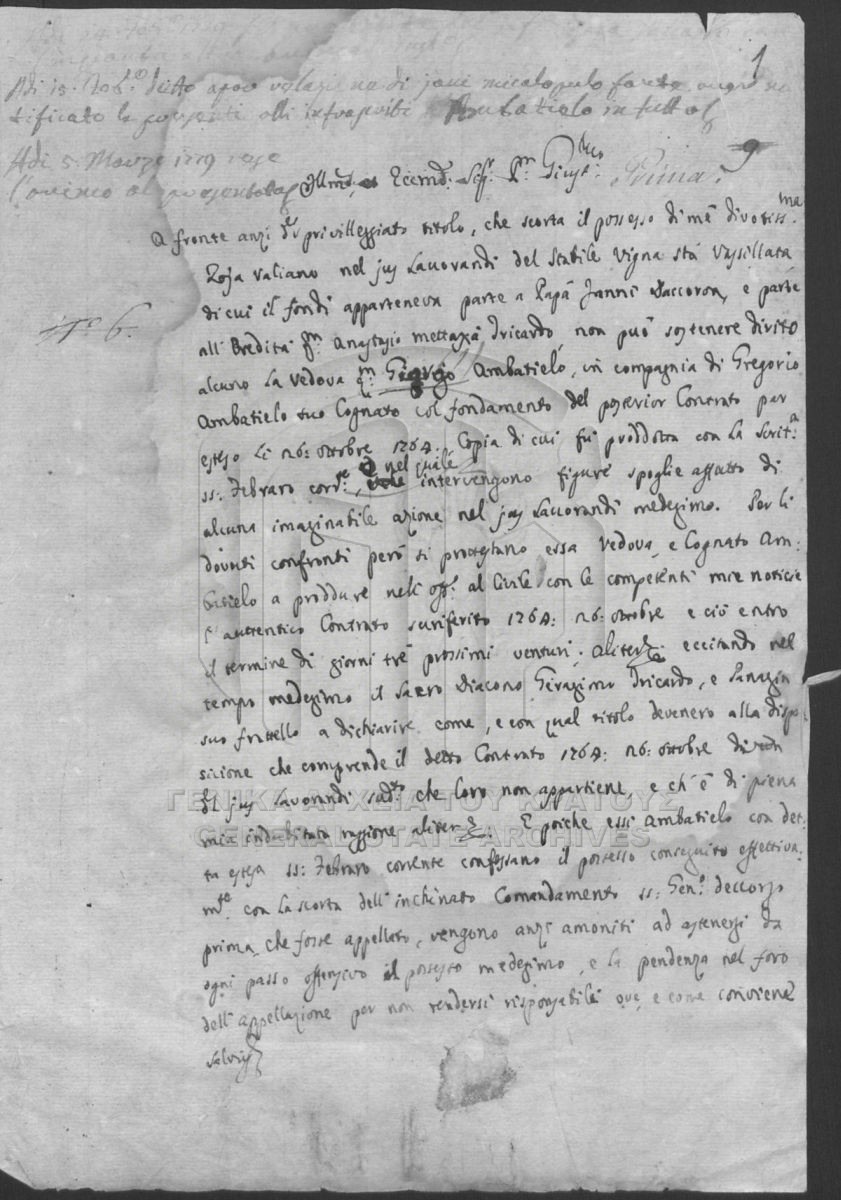 1
Adi 15. Nob.e ditto
tificato la presente alli infrascritti Ambatielo in tutto
9
Adi 5. Marzo 1779
Prima.
A fronte anzi del privilleggiato titolo, che scorta il possesso di me divotiss.ma
Zoja Valiano nel jus Lavorandi del stabile vigna stà Vassillata
di cui il fondi apparteneva parte a Papà Janni Saccoron, e parte
N.o 6.
all'Eredità q.m Anastasio Mettaxà Tricardo, non può sostenere diritto
alcuno la vedova q.m Giorgio Ambatielo, in compagnia di Gregorio
Ambatielo suo Cognato col fondamento del posterior Contrato par
esteso li 26: ottobre 1764. Copia di cui fù prodotta con la Scritt.a
22: Febraro corr.te, nel quale intervengono figure spoglie affatto di
alcuna imaginabile azione nel jus Lavorandi medesimo. Per li
dovuti confronti però si protestano essa Vedova, e Cognato Am:
batielo a produre nell'off.o al Civile con le competenti mie noticie
l'autentico Contrato suriferito 1764: 26: ottobre e ciò entro
il termine di giorni trè prossimi venturi; aliter eccitando nel
tempo medesimo il Sacro Diacono Gerasimo Tricardo, e Panagin
suo frattello a dichiarire come, e con qual titolo devenero alla dispo:
sicione che comprende il detto Contrato 1764: 26: ottobre
del jus Lavorandi sud.to che loro non appartiene, e ch'è di piena
mia indubitata raggione aliter. E poiche essi Ambatielo con det:
ta estesa 22: Febraro corrente confessano il possesso conseguito effettiva:
m.te con la scorta dell'inchinato Comandamento 22: Gen.o deccorso
prima, che fosse appellato, vengono anzi amoniti ad astenersi da
ogni passo offensivo il possesso medesimo, e la pendenza nel foro
dell'appellazione per non rendersi risponsabili ove, e come conviene
salvis
ΓΕΝΙΚΑ ΑΡΧΕΙΑ ΤΟΥ ΚΡΑΤΟΥΣ
GENERAL STATE ARCHIVES